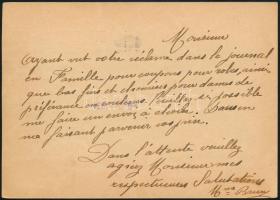 Monsieur
Ayant vu votre réclame dans le journal
en Famille pour coupons pour robes, ainsi
que bas fins et chemises pour dames de
préférence en couleurs. Veuillez si possible
me faire un envoi à choix. Sans
me faisant parvenir
Dans l'attente veuillez
agréez Monsieur mes
respectueuses Salutations
Mme